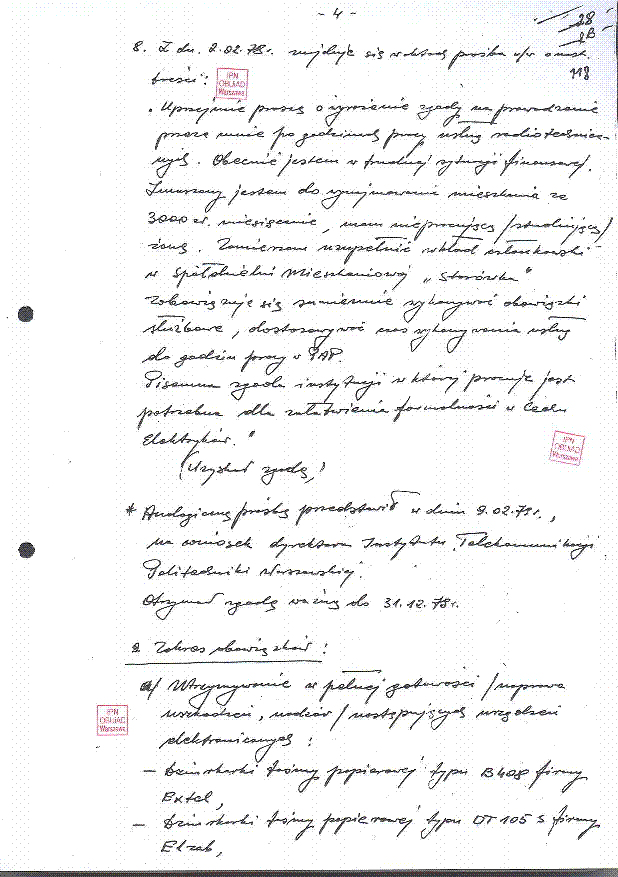 - 4 -
28
2B
118
8. Z dn. 2.02.78r. znajduje się w aktach prośba w/w o nast.
treści:
IPN
OBUiAD
Warszawa
"Uprzejmie proszę o wyrażenie zgody na prowadzenie
przeze mnie po godzinach pracy usług radiotechnicz-
nych. Obecnie jestem w trudnej sytuacji finansowej.
Zmuszony jestem do wynajmowania mieszkania za
3000 zł. miesięcznie, mam niepracującą /studiującą/
żonę. Zamierzam uzupełnić wkład członkowski
w Spółdzielni Mieszkaniowej „Starówka"
Zobowiązuję się sumiennie wykonywać obowiązki
służbowe, dostosowywać czas wykonywania usług
do godzin pracy w PAP.
Pisemna zgoda instytucji w której pracuję jest
potrzebna dla załatwienia formalności w Cechu
Elektryków."
(Uzyskał zgodę)
IPN
OBUiAD
Warszawa
* Analogiczną prośbę przedstawił w dniu 9.02.78r.,
na wniosek dyrektora Instytutu Telekomunikacji
Politechniki Warszawskiej.
Otrzymał zgodę ważną do 31.12.78r.
9. Zakres obowiązków:
a/ Utrzymywanie w pełnej gotowości /naprawa
uszkodzeń, nadzór/ następujących urządzeń
elektronicznych:
IPN
OBUiAD
Warszawa
- Dziurkarki taśmy papierowej typu B 408 firmy
Extel,
- Dziurkarki taśmy papierowej typu DT 105 S firmy
Elzab,